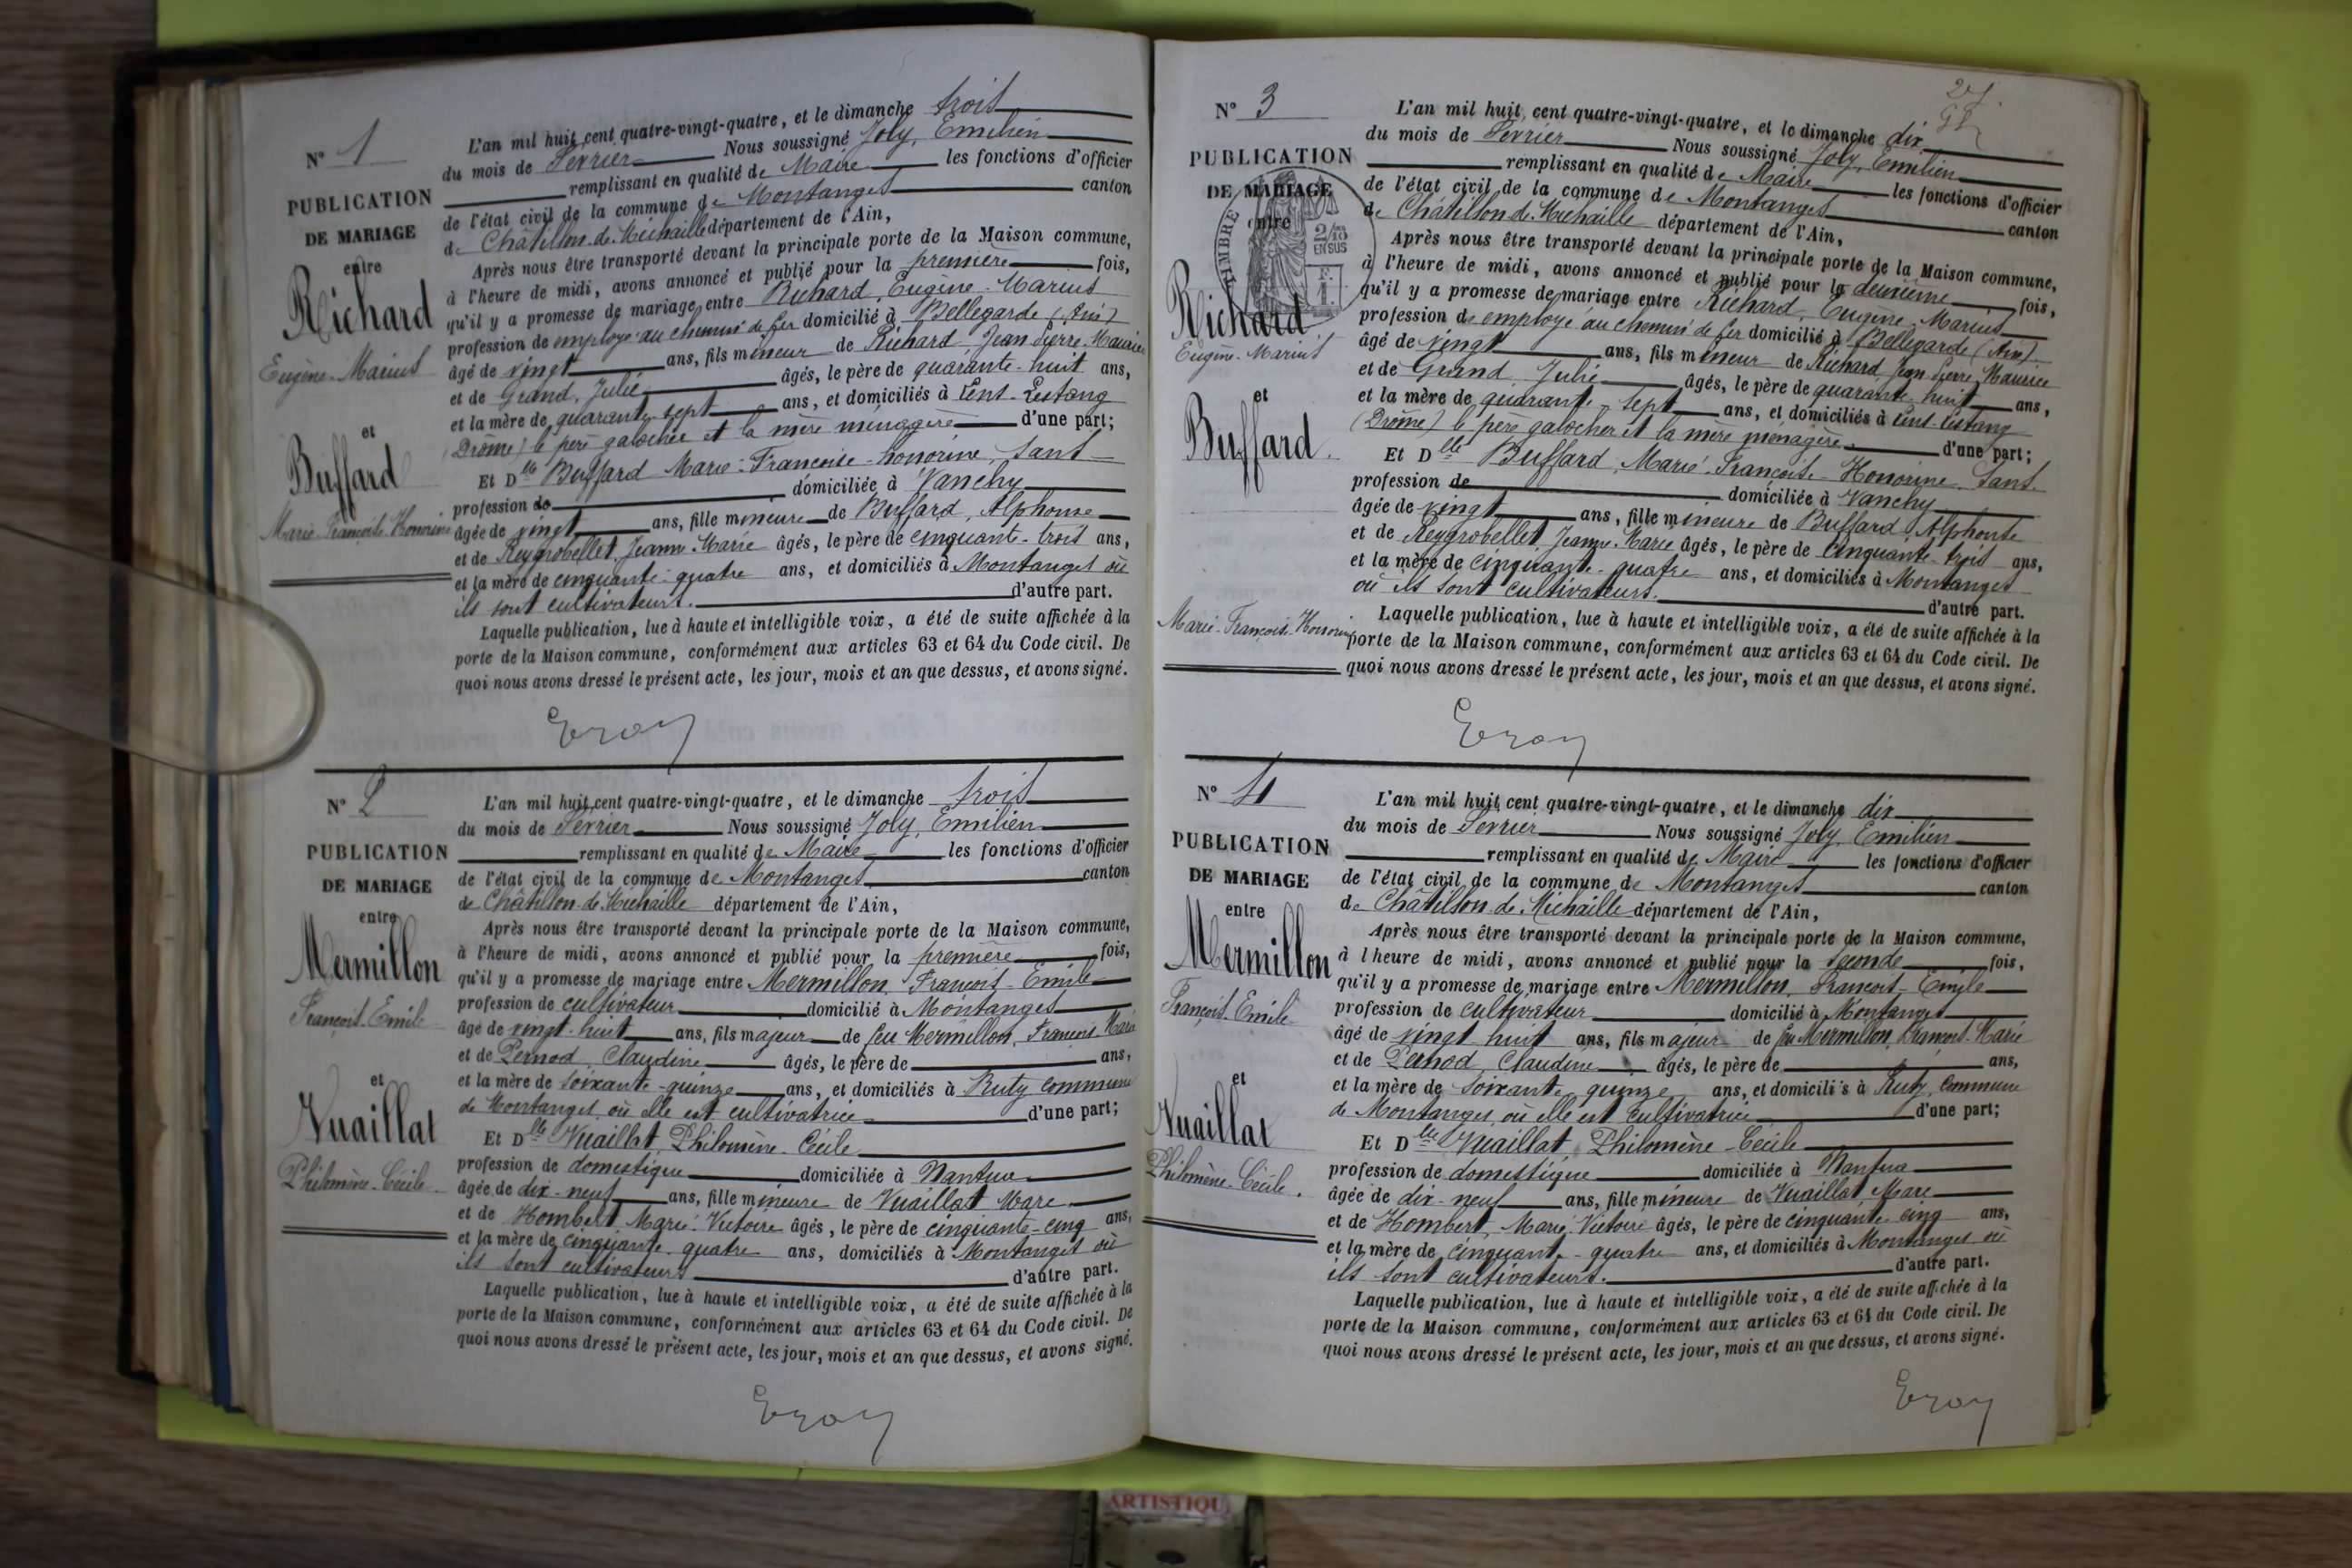 N° 1
PUBLICATION
DE MARIAGE
entre
Richard
Eugène-Marius
et
Buffard
Marie-Françoise-Honorine
L'an mil huit cent quatre-vingt-quatre, et le dimanche trois
du mois de Février Nous soussigné Joly, Emilien
remplissant en qualité de Maire les fonctions d'officier
de l'état civil de la commune de Montanges canton
de Châtillon-de-Michaille département de l'Ain,
Après nous être transporté devant la principale porte de la Maison commune,
à l'heure de midi, avons annoncé et publié pour la première fois,
qu'il y a promesse de mariage entre Richard, Eugène-Marius
profession de employé au chemin de fer domicilié à Bellegarde (Ain)
âgé de vingt ans, fils mineur de Richard Jean Pierre Maurice
et de Grand, Julie âgés, le père de quarante-huit ans,
et la mère de quarante-sept ans, et domiciliés à Lens-Lestang
(Drôme) le père galocher et la mère ménagère d'une part;
Et Dlle Buffard Marie-Françoise-honorine, sans
profession de domiciliée à Vanchy
âgée de vingt ans, fille mineure de Buffard, Alphonse
et de Reygrobellet, Jeanne-Marie âgés, le père de cinquante-trois ans,
et la mère de cinquante-quatre ans, et domiciliés à Montanges où
ils sont cultivateurs. d'autre part.
Laquelle publication, lue à haute et intelligible voix, a été de suite affichée à la
porte de la Maison commune, conformément aux articles 63 et 64 du Code civil. De
quoi nous avons dressé le présent acte, les jour, mois et an que dessus, et avons signé.
N° 2
PUBLICATION
DE MARIAGE
entre
Mermillon
François-Emile
et
Vuaillat
Philomène-Cécile
L'an mil huit cent quatre-vingt-quatre, et le dimanche trois
du mois de Février Nous soussigné Joly, Emilien
remplissant en qualité de Maire les fonctions d'officier
de l'état civil de la commune de Montanges canton
de Châtillon-de-Michaille département de l'Ain,
Après nous être transporté devant la principale porte de la Maison commune,
à l'heure de midi, avons annoncé et publié pour la première fois,
qu'il y a promesse de mariage entre Mermillon, François-Emile
profession de cultivateur domicilié à Montanges
âgé de vingt-huit ans, fils majeur de feu Mermillon, François-Marie
et de Pernod, Claudine âgés, le père de ans,
et la mère de soixante-quinze ans, et domiciliés à Ruty commune
de Montanges, où elle est cultivatrice d'une part;
Et Dlle Vuaillat, Philomène-Cécile
profession de domestique domiciliée à Nantua
âgée de dix-neuf ans, fille mineure de Vuaillat Marc
et de Hombert, Marie-Victoire âgés, le père de cinquante-cinq ans,
et la mère de cinquante-quatre ans, domiciliés à Montanges où
ils sont cultivateurs d'autre part.
Laquelle publication, lue à haute et intelligible voix, a été de suite affichée à la
porte de la Maison commune, conformément aux articles 63 et 64 du Code civil. De
quoi nous avons dressé le présent acte, les jour, mois et an que dessus, et avons signé.
N° 3
PUBLICATION
DE MARIAGE
entre
TIMBRE
2/10
EN SUS
Richard
Eugène-Marius
et
Buffard
Marie-Françoise-Honorine
L'an mil huit cent quatre-vingt-quatre, et le dimanche dix
du mois de Février Nous soussigné Joly, Emilien
remplissant en qualité de Maire les fonctions d'officier
de l'état civil de la commune de Montanges canton
de Châtillon-de-Michaille département de l'Ain,
Après nous être transporté devant la principale porte de la Maison commune,
à l'heure de midi, avons annoncé et publié pour la deuxième fois,
qu'il y a promesse de mariage entre Richard, Eugène-Marius
profession de employé au chemin de fer domicilié à Bellegarde (Ain)
âgé de vingt ans, fils mineur de Richard Jean Pierre Maurice
et de Grand, Julie âgés, le père de quarante-huit ans,
et la mère de quarante-sept ans, et domiciliés à Lens-Lestang
(Drôme) le père galocher et la mère ménagère d'une part;
Et Dlle Buffard, Marie-Françoise-Honorine, Sans
profession de domiciliée à Vanchy
âgée de vingt ans, fille mineure de Buffard Alphonse
et de Reygrobellet, Jeanne-Marie âgés, le père de cinquante-trois ans,
et la mère de cinquante-quatre ans, et domiciliés à Montanges
où ils sont cultivateurs. d'autre part.
Laquelle publication, lue à haute et intelligible voix, a été de suite affichée à la
porte de la Maison commune, conformément aux articles 63 et 64 du Code civil. De
quoi nous avons dressé le présent acte, les jour, mois et an que dessus, et avons signé.
N° 4
PUBLICATION
DE MARIAGE
entre
Mermillon
François-Emile
et
Vuaillat
Philomène-Cécile.
L'an mil huit cent quatre-vingt-quatre, et le dimanche dix
du mois de Février Nous soussigné Joly, Emilien
remplissant en qualité de Maire les fonctions d'officier
de l'état civil de la commune de Montanges canton
de Châtillon-de-Michaille département de l'Ain,
Après nous être transporté devant la principale porte de la Maison commune,
à l'heure de midi, avons annoncé et publié pour la seconde fois,
qu'il y a promesse de mariage entre Mermillon, François-Emile
profession de cultivateur domicilié à Montanges
âgé de vingt-huit ans, fils majeur de feu Mermillon, François-Marie
et de Pernod, Claudine âgés, le père de ans,
et la mère de soixante-quinze ans, et domiciliés à Ruty, commune
de Montanges, où elle est cultivatrice d'une part;
Et Dlle Vuaillat, Philomène-Cécile
profession de domestique domiciliée à Nantua
âgée de dix-neuf ans, fille mineure de Vuaillat, Marc
et de Hombert, Marie-Victoire âgés, le père de cinquante-cinq ans,
et la mère de cinquante-quatre ans, et domiciliés à Montanges où
ils sont cultivateurs. d'autre part.
Laquelle publication, lue à haute et intelligible voix, a été de suite affichée à la
porte de la Maison commune, conformément aux articles 63 et 64 du Code civil. De
quoi nous avons dressé le présent acte, les jour, mois et an que dessus, et avons signé.
ARTISTIQU